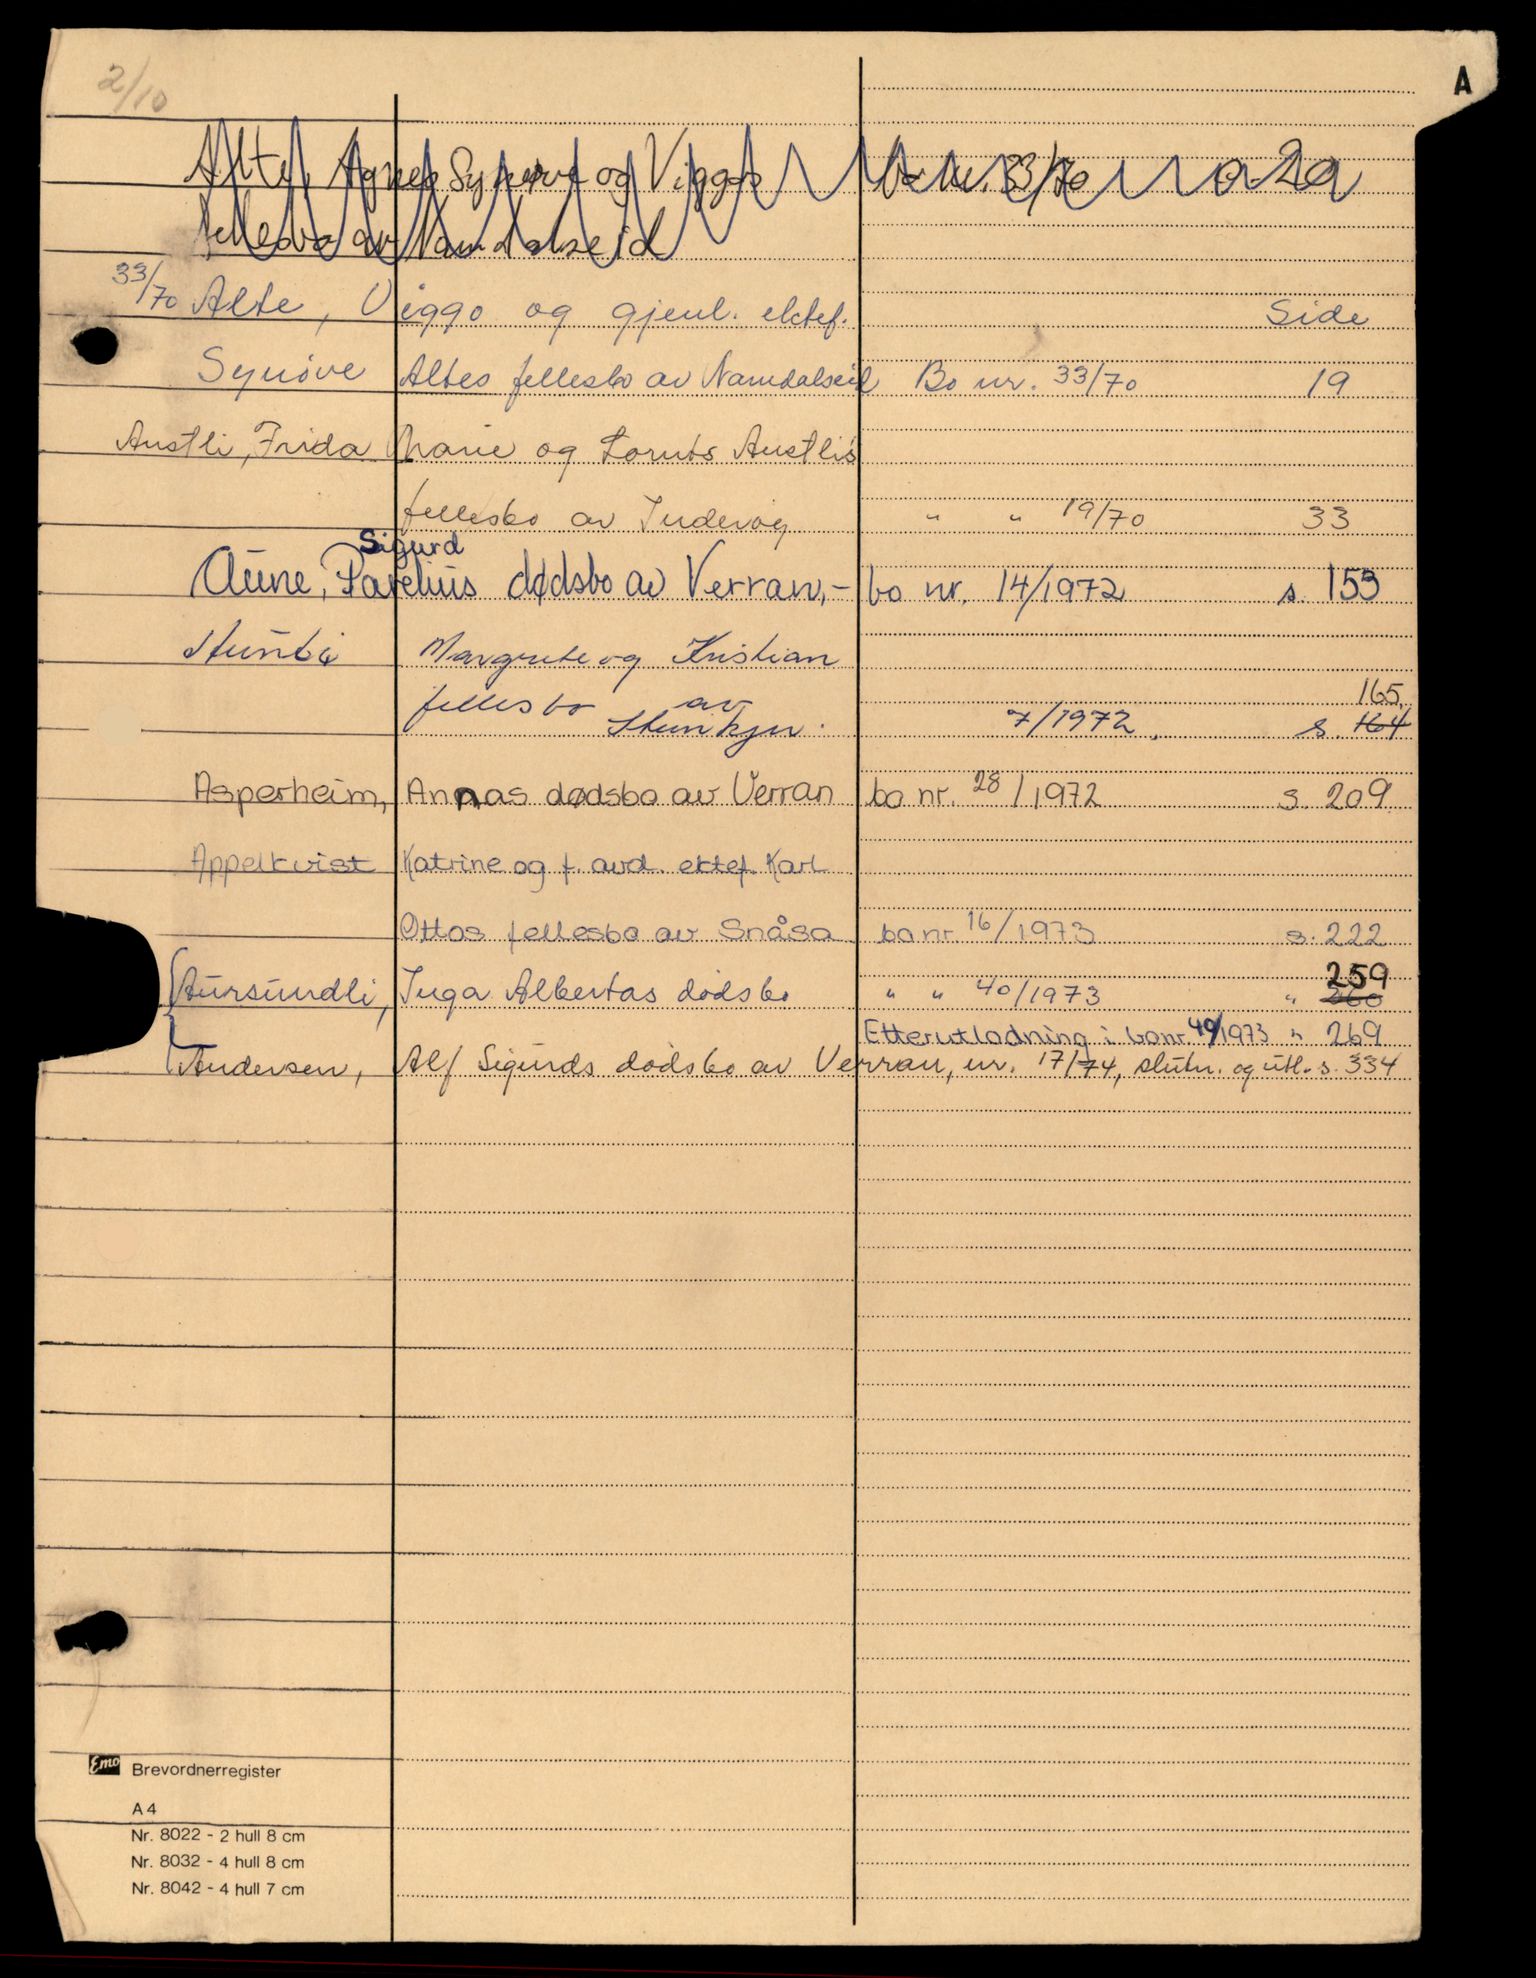 A
2/10
Alte, Agnes Synøve og Viggo bo nr. 33/70 s. 20
fellesbo av Namdalseid
33/70 Alte, Viggo og gjenl. ektef. Side
Synøve Altes fellesbo av Namdalseid Bo nr. 33/70 19
Austli, Frida Marie og Lornts Austli's
fellesbo av Inderøy " " 19/70 33
Sigurd
Aune, Parelius dødsbo av Verran,- bo nr. 14/1972 s. 153
Margrete og Kristian
165
fellesbo av Steinkjer. 7/1972. s. 164
Asperheim, Annas dødsbo av Verran bo nr. 28/1972 s. 209
Appelkvist Katrine og f. avd. ektef. Karl
Ottos fellesbo av Snåsa bo nr 16/1973 s. 222
259
Aursundli, Inga Albertas dødsbo " " 40/1973 " 260
Etterutlodning i bo nr 40/1973 " 269
Andersen, Alf Sigurds dødsbo av Verran, nr. 17/74, slutn. og utl. s. 334
Emo Brevordnerregister
A 4
Nr. 8022 - 2 hull 8 cm
Nr. 8032 - 4 hull 8 cm
Nr. 8042 - 4 hull 7 cm